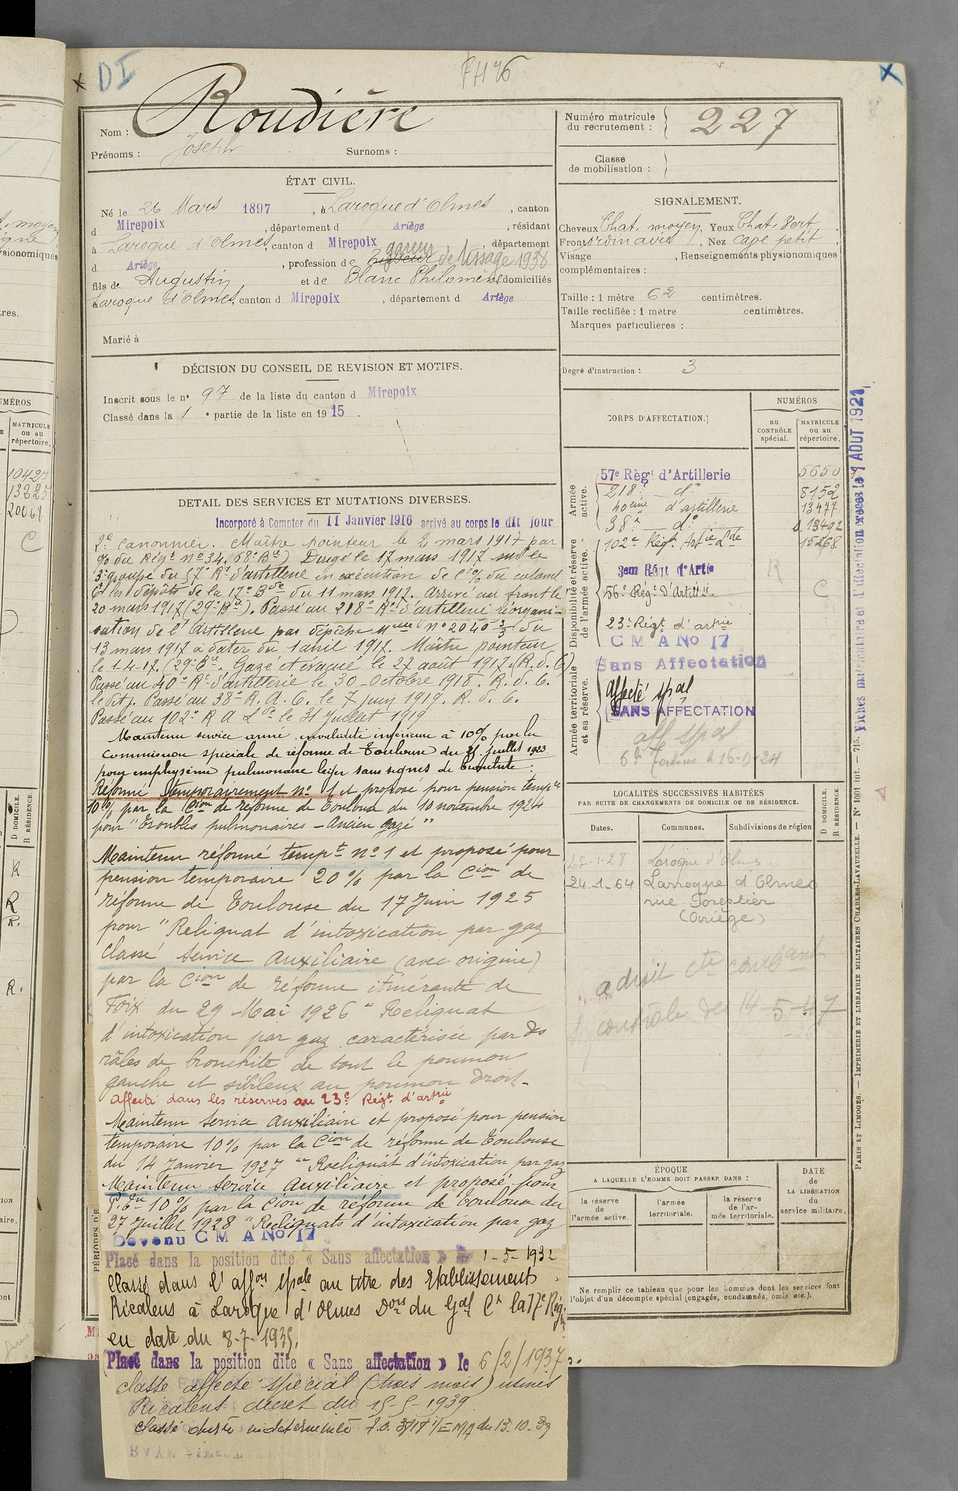 DI
Nom : Roudière
Prénoms : Joseph Surnoms :
Numéro matricule du recrutement : 227
Classe de mobilisation :
ÉTAT CIVIL.
Né le 26 Mars 1897, à Laroque d'Olmes, canton
d Mirepoix, département d Ariège, résidant
à Laroque d'Olmes, canton d Mirepoix département
d Ariège, profession de gareur de tissage 1938
fils de Augustin et de Blanc Philomène domiciliés
à Laroque d'Olmes, canton d Mirepoix, département d Ariège
Marié à
SIGNALEMENT.
Cheveux Chat. moyen Yeux Chat. vert
Front ordinaire, Nez cave petit,
Visage , Renseignements physionomiques
complémentaires :
Taille : 1 mètre 62 centimètres.
Taille rectifiée : 1 mètre centimètres.
Marques particulières :
Degré d'instruction : 3
DÉCISION DU CONSEIL DE REVISION ET MOTIFS.
Inscrit sous le n° 97 de la liste du canton d Mirepoix
Classé dans la 1e partie de la liste en 1915.
DETAIL DES SERVICES ET MUTATIONS DIVERSES.
Incorporé à Compter du 11 Janvier 1916 arrivé au corps le dit jour
2e Canonnier. Maître pointeur le 2 mars 1917 par
20 mars 1917 (29e Bie). Passé au 218e Rt d'artillerie réorgani-
sation de l'Artillerie par dépêche Melle N° 2040 3/3 du
13 mars 1917 à dater du 1 avril 1917. Maître pointeur
le 1-4-17. (29e Bie. Gazé et évacué le 27 août 1917. (R. d. C)
Passé au 40e Rt d'artillerie le 30 octobre 1918. R. d. C.
le dit j. Passé au 38e R. A. C. le 7 juin 1919. R. d. C.
Passé au 102e R A Lde le 31 Juillet 1919
Maintenu service armé invalidité inférieure à 10% par la
Commission spéciale de réforme de Toulouse du 25 juillet 1923
pour emphysème pulmonaire léger sans signes de bronchite.
Réformé temporairement n° 1 et proposé pour pension tempre
10% par la Cion de réforme de Toulouse du 10 novembre 1924
pour "Troubles pulmonaires - Ancien gazé"
Maintenu réformé tempt n° 1 et proposé pour
pension temporaire 20% par la Cion de
réforme de Toulouse du 17 Juin 1925
pour "Reliquat d'intoxication par gaz
Classé Service Auxiliaire (avec origine)
par la Cion de réforme itinérante de
Foix du 29 Mai 1926 "Reliquat
d'intoxication par gaz caractérisée par des
râles de bronchite de tout le poumon
gauche et sibileux au poumon droit-
Affecté dans les réserves au 23e Régt d'artie
Maintenu Service Auxiliaire et proposé pour pension
temporaire 10% par la Cion de réforme de Toulouse
du 14 Janvier 1927 "Reliquat d'intoxication par gaz
Maintenu Service Auxiliaire et proposé pour
10% par la Cion de réforme de Toulouse du
27 Juillet 1928 "Reliquats d'intoxication par gaz
Devenu C M A No 17
Placé dans la position dite « Sans affectation » le 1-5-1932
Classé dans l'affon spale au titre des Etablissements
Ricalens à Laroque d'Olmes Don du Gal Ct la 17e Rég
en date du 8-7-1935.
Placé dans la position dite « Sans affectation » le 6/2/1937
Classé affecté spécial (trois mois) usines
Ricalens décret du 15-5-1939
Classé durée indéterminée du 13.10.39
CORPS D'AFFECTATION.
NUMÉROS
AU CONTRÔLE spécial.
MATRICULE ou au répertoire.
Armée active.
57e Régt d'Artillerie 5650
218e do 8152
40ème d'artillerie 13477
38e do 13492
102e Régt Artie Lde 15268
Disponibilité et réserve de l'armée active.
3eme Régt d'Artie R
56e Régt d'Artie C
23e Régt d'artie
C M A No 17
Sans Affectation
Armée territoriale et sa réserve.
Affecté spal
SANS AFFECTATION
aff spal
LOCALITÉS SUCCESSIVES HABITÉES
PAR SUITE DE CHANGEMENTS DE DOMICILE OU DE RÉSIDENCE.
Dates. Communes. Subdivisions de région D DOMICILE. R RÉSIDENCE.
15-1-28 Laroque d'Olmes
24-1-64 Larroque d'Olmes
rue Forestier
(Ariège)
a droit cte combattant
14-5-47
ÉPOQUE
A LAQUELLE L'HOMME DOIT PASSER DANS :
la réserve de l'armée active.
l'armée territoriale.
la réserve de l'armée territoriale.
DATE DE LA LIBÉRATION du service militaire.
Ne remplir ce tableau que pour les hommes dont les services font
l'objet d'un décompte spécial (engagés, condamnés, omis etc.).
PARIS ET LIMOGES. — IMPRIMERIE ET LIBRAIRIE MILITAIRES CHARLES-LAVAUZELLE. — N° 1001 Int. — 715.
Fiches matriculaire et d'affectation 1 AOUT 1921
MATRICULE ou au répertoire.
10427
13225
20061
C
D DOMICILE.
R RÉSIDENCE.
R
R
R.
R.